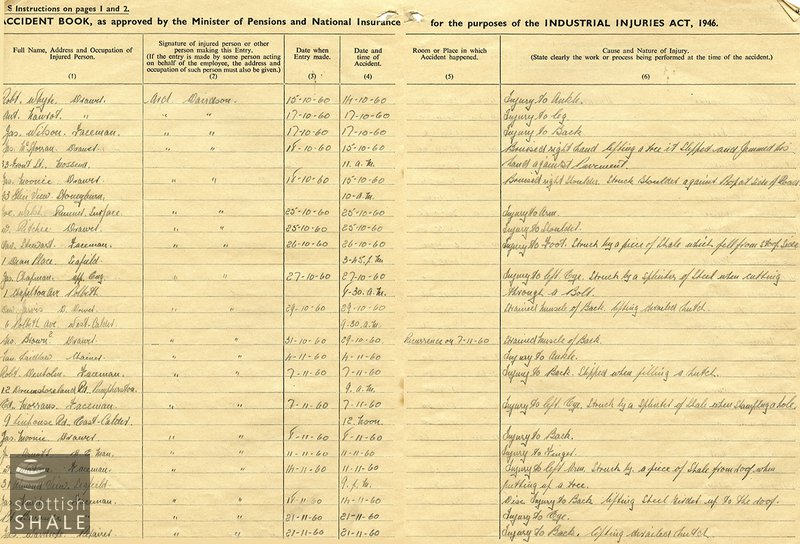 S Instructions on pages 1 and 2.
ACCIDENT BOOK, as approved by the Minister of Pensions and National Insurance for the purposes of the INDUSTRIAL INJURIES ACT, 1946.
Full Name, Address and Occupation of Injured Person. (1)
Signature of injured person or other person making this Entry. (If the entry is made by some person acting on behalf of the employee, the address and occupation of such person must also be given.) (2)
Date when Entry made. (3)
Date and time of Accident. (4)
Room or Place in which Accident happened. (5)
Cause and Nature of Injury. (State clearly the work or process being performed at the time of the accident.) (6)
Robt. Whyte. Drawer. Arcd Davidson. 15-10-60 14-10-60 Injury to Ankle.
" " " 17-10-60 17-10-60 Injury to leg
Jas. Wilson. Faceman. " " 17-10-60 17-10-60 Injury to Back
Drawer " " 18-10-60 15-10-60 Bruised right hand lifting a tree it slipped and jammed his
Mossend. 11. a.m. hand against Pavement.
Jas. Moonie Drawer " " 18-10-60 15-10-60 Bruised right shoulder. Struck shoulder against at side of Road
View Stoneyburn. 10-a.m.
" " 25-10-60 25-10-60 Injury to Arm.
Ritchie Drawer " " 25-10-60 25-10-60 Injury to Shoulder.
Stewart. Faceman " " 26-10-60 26-10-60 Injury to Foot. Struck by a piece of Shale which fell from
1 Place. Seafield. 3-45. p.m.
Jas. Chapman. " " 27-10-60 27-10-60 Injury to left Eye. Struck by a Splinter of Steel when cutting
1 Ave Polbeth 9-30. a.m. through a Bolt.
Jarvis " " 29-10-60 29-10-60 Strained muscle of Back. lifting derailed hutch.
6 Polbeth ave. West-Calder. 9.30 a.m.
Brown² Drawer " " 31-10-60 29-10-60 Recurrence on 7-11-60 Strained Muscle of Back.
Laidlaw " " 4-11-60 4-11-60 Injury to Ankle.
Robt. Faceman. " " 7-11-60 7-11-60 Injury to Back. Slipped when filling a hutch.
12 Pumpherston. 9. a.m.
Faceman. " " 7-11-60 7-11-60 Injury to left Eye. Struck by a Splinter of Shale when Stamping a hole.
9 Rd. East-Calder. 12. noon.
Jas. Moonie Drawer " " 8-11-60 8-11-60 Injury to Back.
" " 11-11-60 11-11-60 Injury to Finger.
Faceman. " " 14-11-60 11-11-60 Injury to left Arm. Struck by a piece of Shale from roof when
31 View. Seafield 9. p.m. putting up a tree.
Faceman. " " 18-11-60 14-11-60 Disc Injury to Back lifting Steel up to the roof.
" " 21-11-60 21-11-60 Injury to Eye.
" " 21-11-60 21-11-60 Injury to Back. lifting derailed hutch.
scottish
SHALE